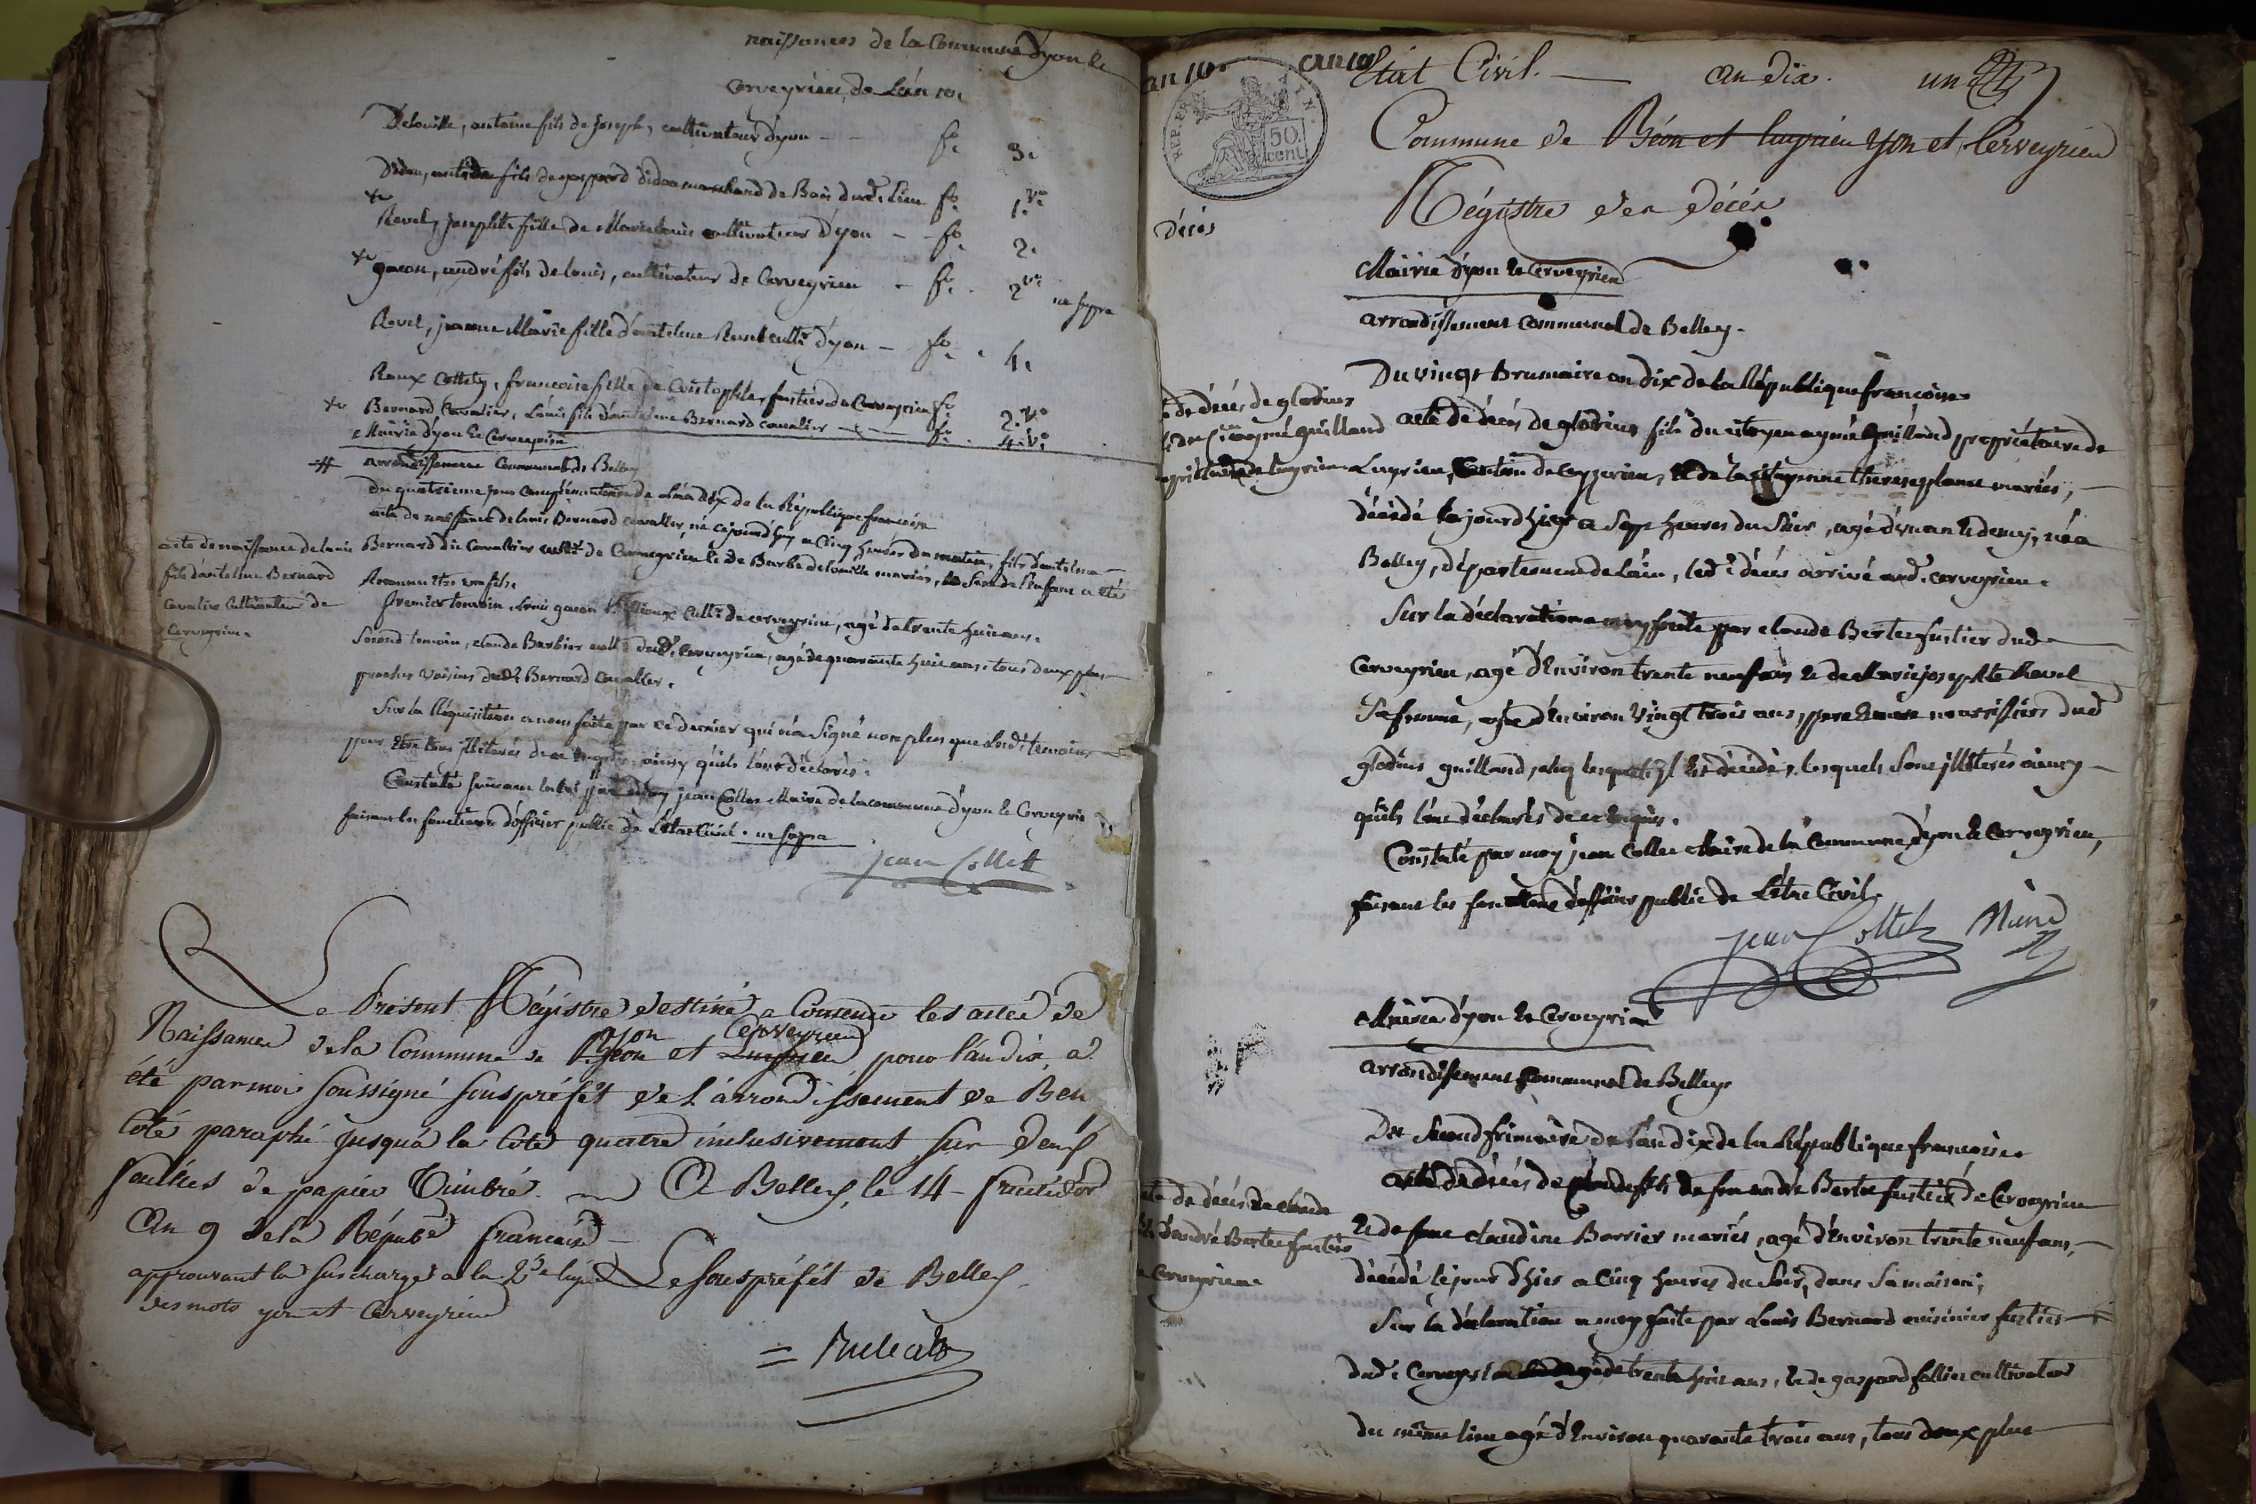 naissances de la Commune d'yon le
Cerveyrieu, de L'an 10.
Delouille, antoine fils de Joseph, cultivateur d'yon - - fo. 3.
Didon, fils de gaspard didon marchand de Bois dud. Lieu fo. 1.vo
Revel, Josephte fille de Marie louis cultivateur d'yon - - fo. 2.
gacon, andré fils de louis, cultivateur de Cerveyrieu - fo. 2vo
Revel, jeanne Marie fille d'antelme Revel cultr. d'yon - fo. 4.
Roux Collety, francoise fille de Cristophle, fustier de Cerveyrieu fo. 2.vo
Bernard Cavalier, Louis fils d'antelme Bernard cavalier fo. 4.vo
Mairie d'yon le Cerveyrieu
arrondissement Communal de Belley
du quatrieme jour Complementaire de L'an dix de la République francoise
acte de naissance de louis Bernard cavallier, né cejourd'huy a Cinq heures du matin, fils d'antelme
Bernard dit Cavalier cultr. de Cerveyrieu le de Barbe delouille mariés, le Sexe de l'enfant a été
Reconnu être un fils.
premier temoin, Louis gacon cultr. de cerveyrieu, agé de trente huit ans.
Second temoin, claude Barbier cultr. dud. Cerveyrieu, agé de quarante huit ans, tous deux plus
proches Voisins dudt. Bernard Cavallier.
Sur la Réquisition a nous faite par ce dernier qui n'a Signé non plus que lesdt. temoins
pour être tous illiterés de ce enquis, ainsy qu'ils l'ont déclarés.
Constaté suivant la loi par moy jean Collet Maire de la commune d'yon le Cerveyrieu
faisant les fonctions d'officier public de L'etat Civil.
Jean Collet
acte de naissance de louis
fils d'antelme Bernard
Cavalier Cultivateur de
Cerveyrieu.
Le Présent Régistre destiné a Contenir les actes de
Naissance de la Commune de Béon et Luyrieu yon Cerveyrieu pour l'an dix, a
été par moi soussigné sousprefêt de L'arrondissement de Bell
coté paraphé jusqua la Cote quatre inclusivement sur deux
feuilles de papier Timbré. A Belley, le 14 fructidor
An 9 de la Répube. francaise
approuvant la surcharge a la 2de ligne Le sousprefêt de Belley.
des mots yon et Cerveyrieu
an 10. an 10
Etat Civil. — an dix. un
REP. FRA.
50. cent
Commune de Béon et luyrieu yon et Cerveyrieu
Régistre des Décés
Décés
Mairie d'yon le Cerveyrieu
arrondissement communal de Belley.
Du vingt Brumaire an dix de la République francoise
acte de décés de glodius fils du citoyen aymé Guilland propriétaire de
Luyrieu, Canton de Ceyzerieu, et de la citoyenne therese plant mariés,
décédé le jour d'hier a Sept heures du Soir, agé d'un an le demy, né a
Belley, département de L'ain, led. décés arrivé aud. cerveyrieu.
Sur la déclaration a moy faite par claude Bertet fustier dud.
Cerveyrieu, agé d'Environ trente neuf ans le de Marie josephte Revel
Sa femme, agée d'Environ Vingt trois ans, pere le mere nourrissiers dud.
glodius guilland, chez lesquels il est décédé, lesquels Sont illiterés ainsy
qu'ils l'ont déclarés de ce enquis.
Constaté par moy jean Collet Maire de la Commune d'yon le Cerveyrieu,
faisant les fonctions d'officier public de L'etat Civil.
Jean Collet Maire
Mairie d'yon le Cerveyrieu
arrondissement Communal de Belley
Du Second frimaire de L'an dix de la République francoise
acte de décés de claude fils de feu andré Bertet fustier de Cerveyrieu
le de feue claudine Barrier mariés, agé d'Environ trente neuf ans,
décédé le jour d'hier a Cinq heures du Soir, dans Sa maison;
Sur la déclaration a moy faite par Louis Bernard cuisinier fustier
dud. Cerveyrieu agé de trente huit ans, le de gaspard follier cultivateur
du même lieu agé d'Environ quarante trois ans, tous deux plus
de décés de glodius
aymé guilland
de décés de claude
d'andré Bertet fustier
Cerveyrieu